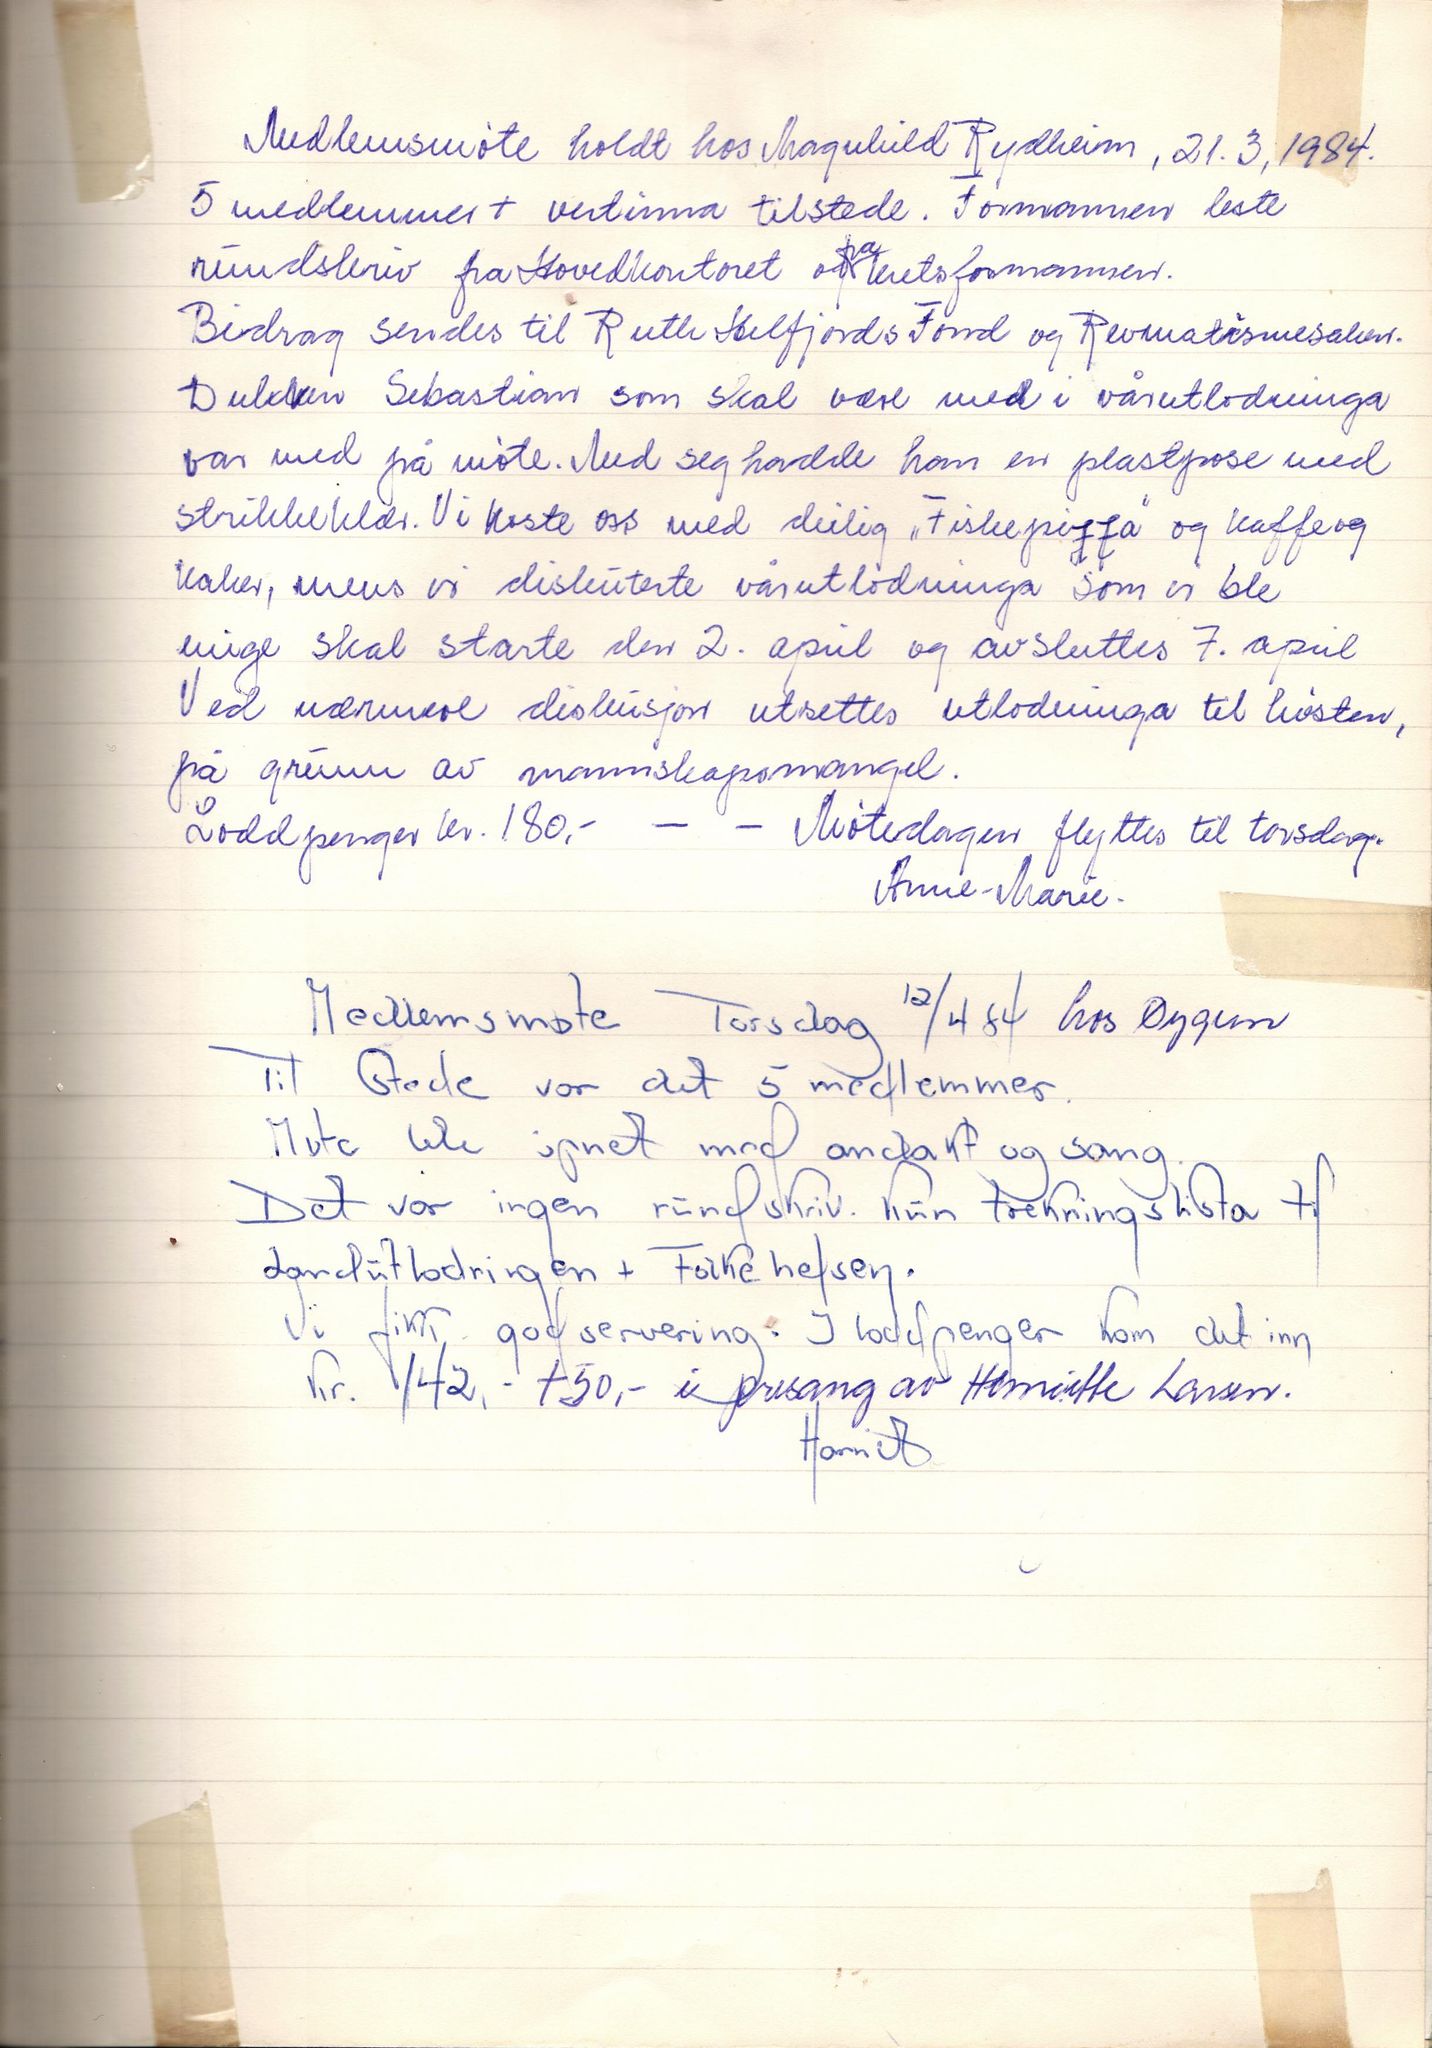 Medlemsmöte holdt hos Magnhild Rydheim, 21.3, 1984.
5 medlemmer + vertinna tilstede. Formannen leste
rundskriv fra Hovedkontoret og fra kretsformannen.
Bidrag sendes til Ruth Helfjords Fond og Revmatismesaken.
Dukken Sebastian som skal være med i vårutlodninga
var med på möte. Med seg hadde han en plastpose med
strikkeklær. Vi koste oss med deilig „Fiskepizza" og kaffe og
kaker, mens vi diskuterte vårutlodninga som vi ble
enige skal starte den 2. april og avsluttes 7. april
Ved nærmere diskusjon utsettes utlodninga til hösten,
på grunn av mannskapsmangel.
Loddpenger kr. 180,- — — Mötedagen flyttes til torsdag.
Anne-Marie.
Medlemsmøte Torsdag 12/4 84 hos Oygunn
Til Stede var det 5 medlemmer.
Møte ble åpnet med andakt og sang.
Det var ingen rundskriv. kun trekningslista til
Landutlodningen + Folkehelsen.
Vi fikk god servering. I loddpenger kom det inn
kr. 142,- +50,- i presang av Henriette Larsen.
Harriet